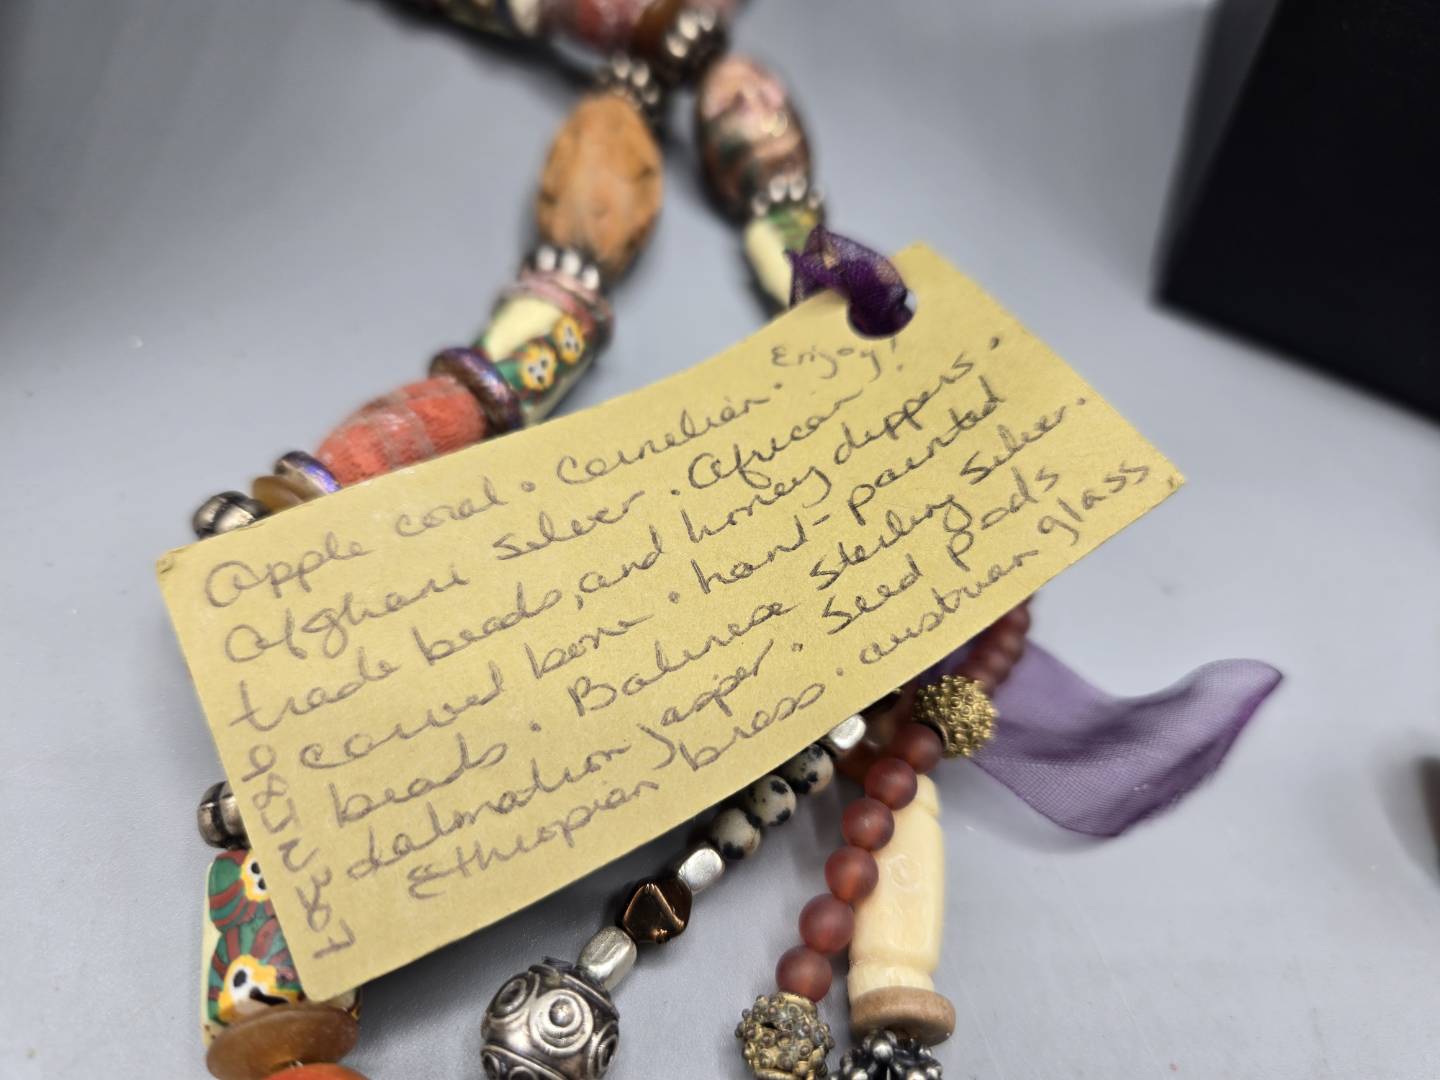 Apple coral. Carnelian. Enjoy!
Afghani silver. African
trade beads, and honey dippers.
carved bone. hand-painted
beads. Balinese sterling silver.
dalmation jasper. Seed Pods
Ethiopian brass. austrian glass